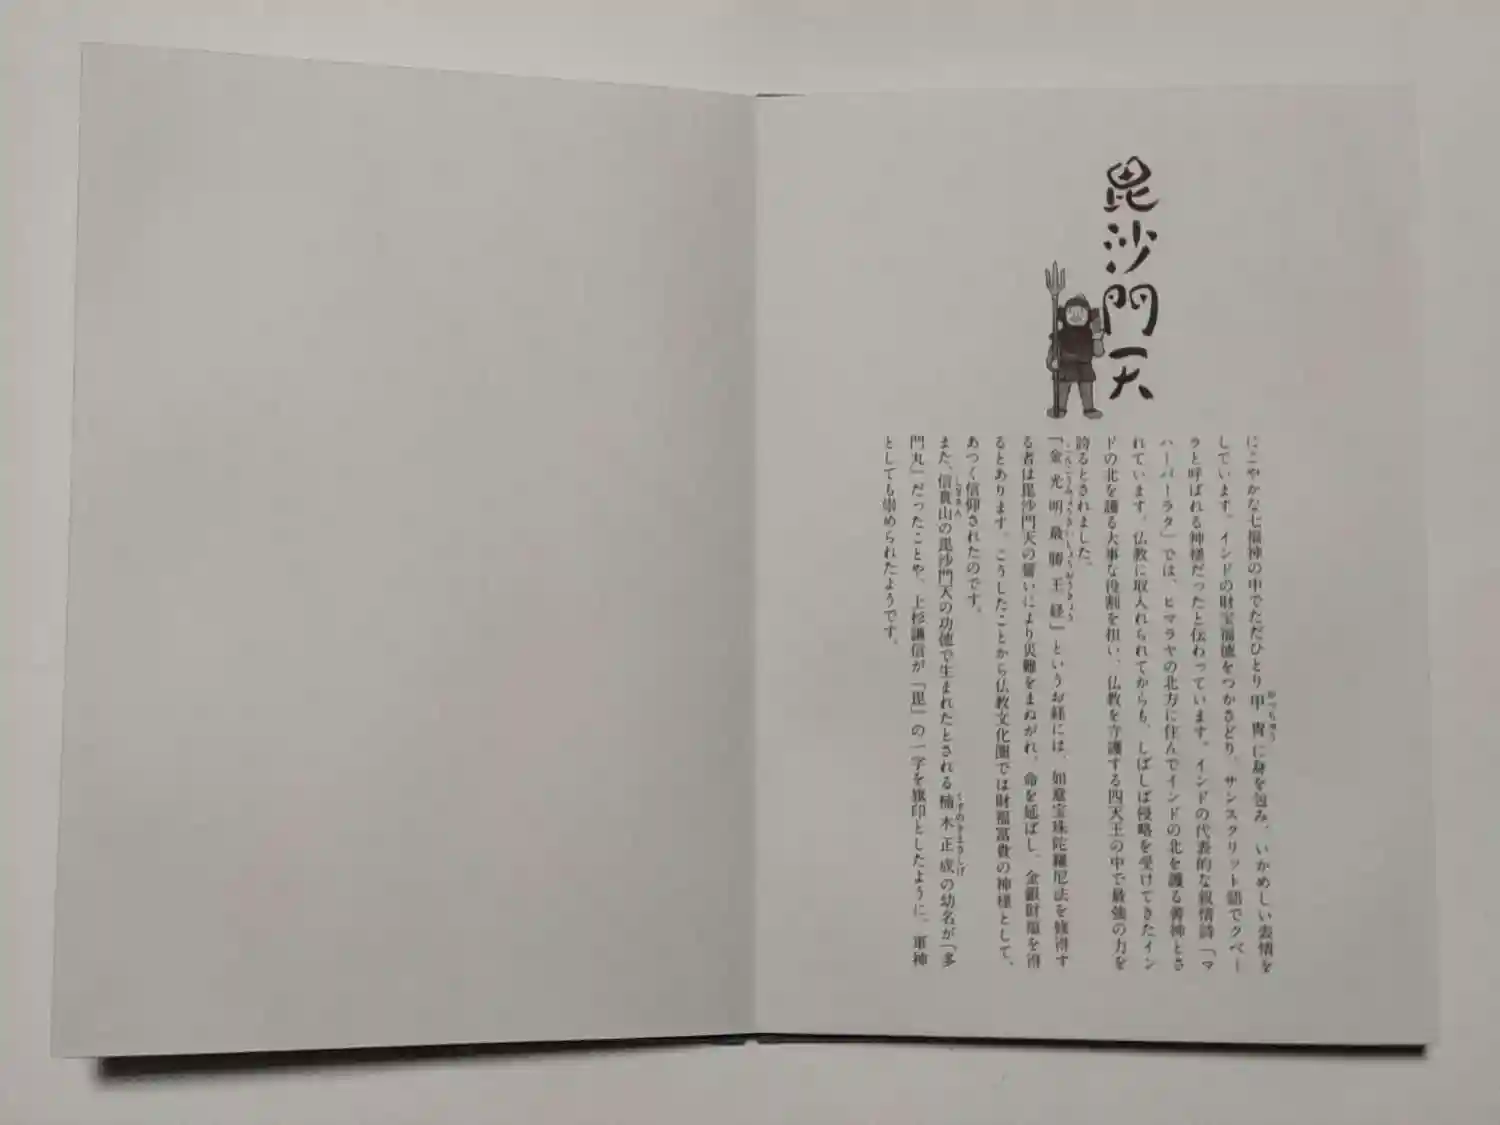 毘沙門天
にこやかな七福神の中でただひとり甲冑に身を包み、いかめしい表情を
しています。インドの財宝福徳をつかさどり、サンスクリット語でクベー
ラと呼ばれる神様だったと伝わっています。インドの代表的な叙情詩「マ
ハーバーラタ」では、ヒマラヤの北方に住んでインドの北を護る善神とさ
れています。仏教に取入れられてからも、しばしば侵略を受けてきたイン
ドの北を護る大事な役割を担い、仏教を守護する四天王の中で最強の力を
誇るとされました。
「金光明最勝王経」というお経には、如意宝珠陀羅尼法を修得す
る者は毘沙門天の誓いにより災難をまぬがれ、命を延ばし、金銀財宝を得
るとあります。こうしたことから仏教文化圏では財福富貴の神様として、
あつく信仰されたのです。
また、信貴山の毘沙門天の功徳で生まれたとされる楠木正成の幼名が「多
門丸」だったことや、上杉謙信が「毘」の一字を旗印としたように、軍神
としても崇められたようです。